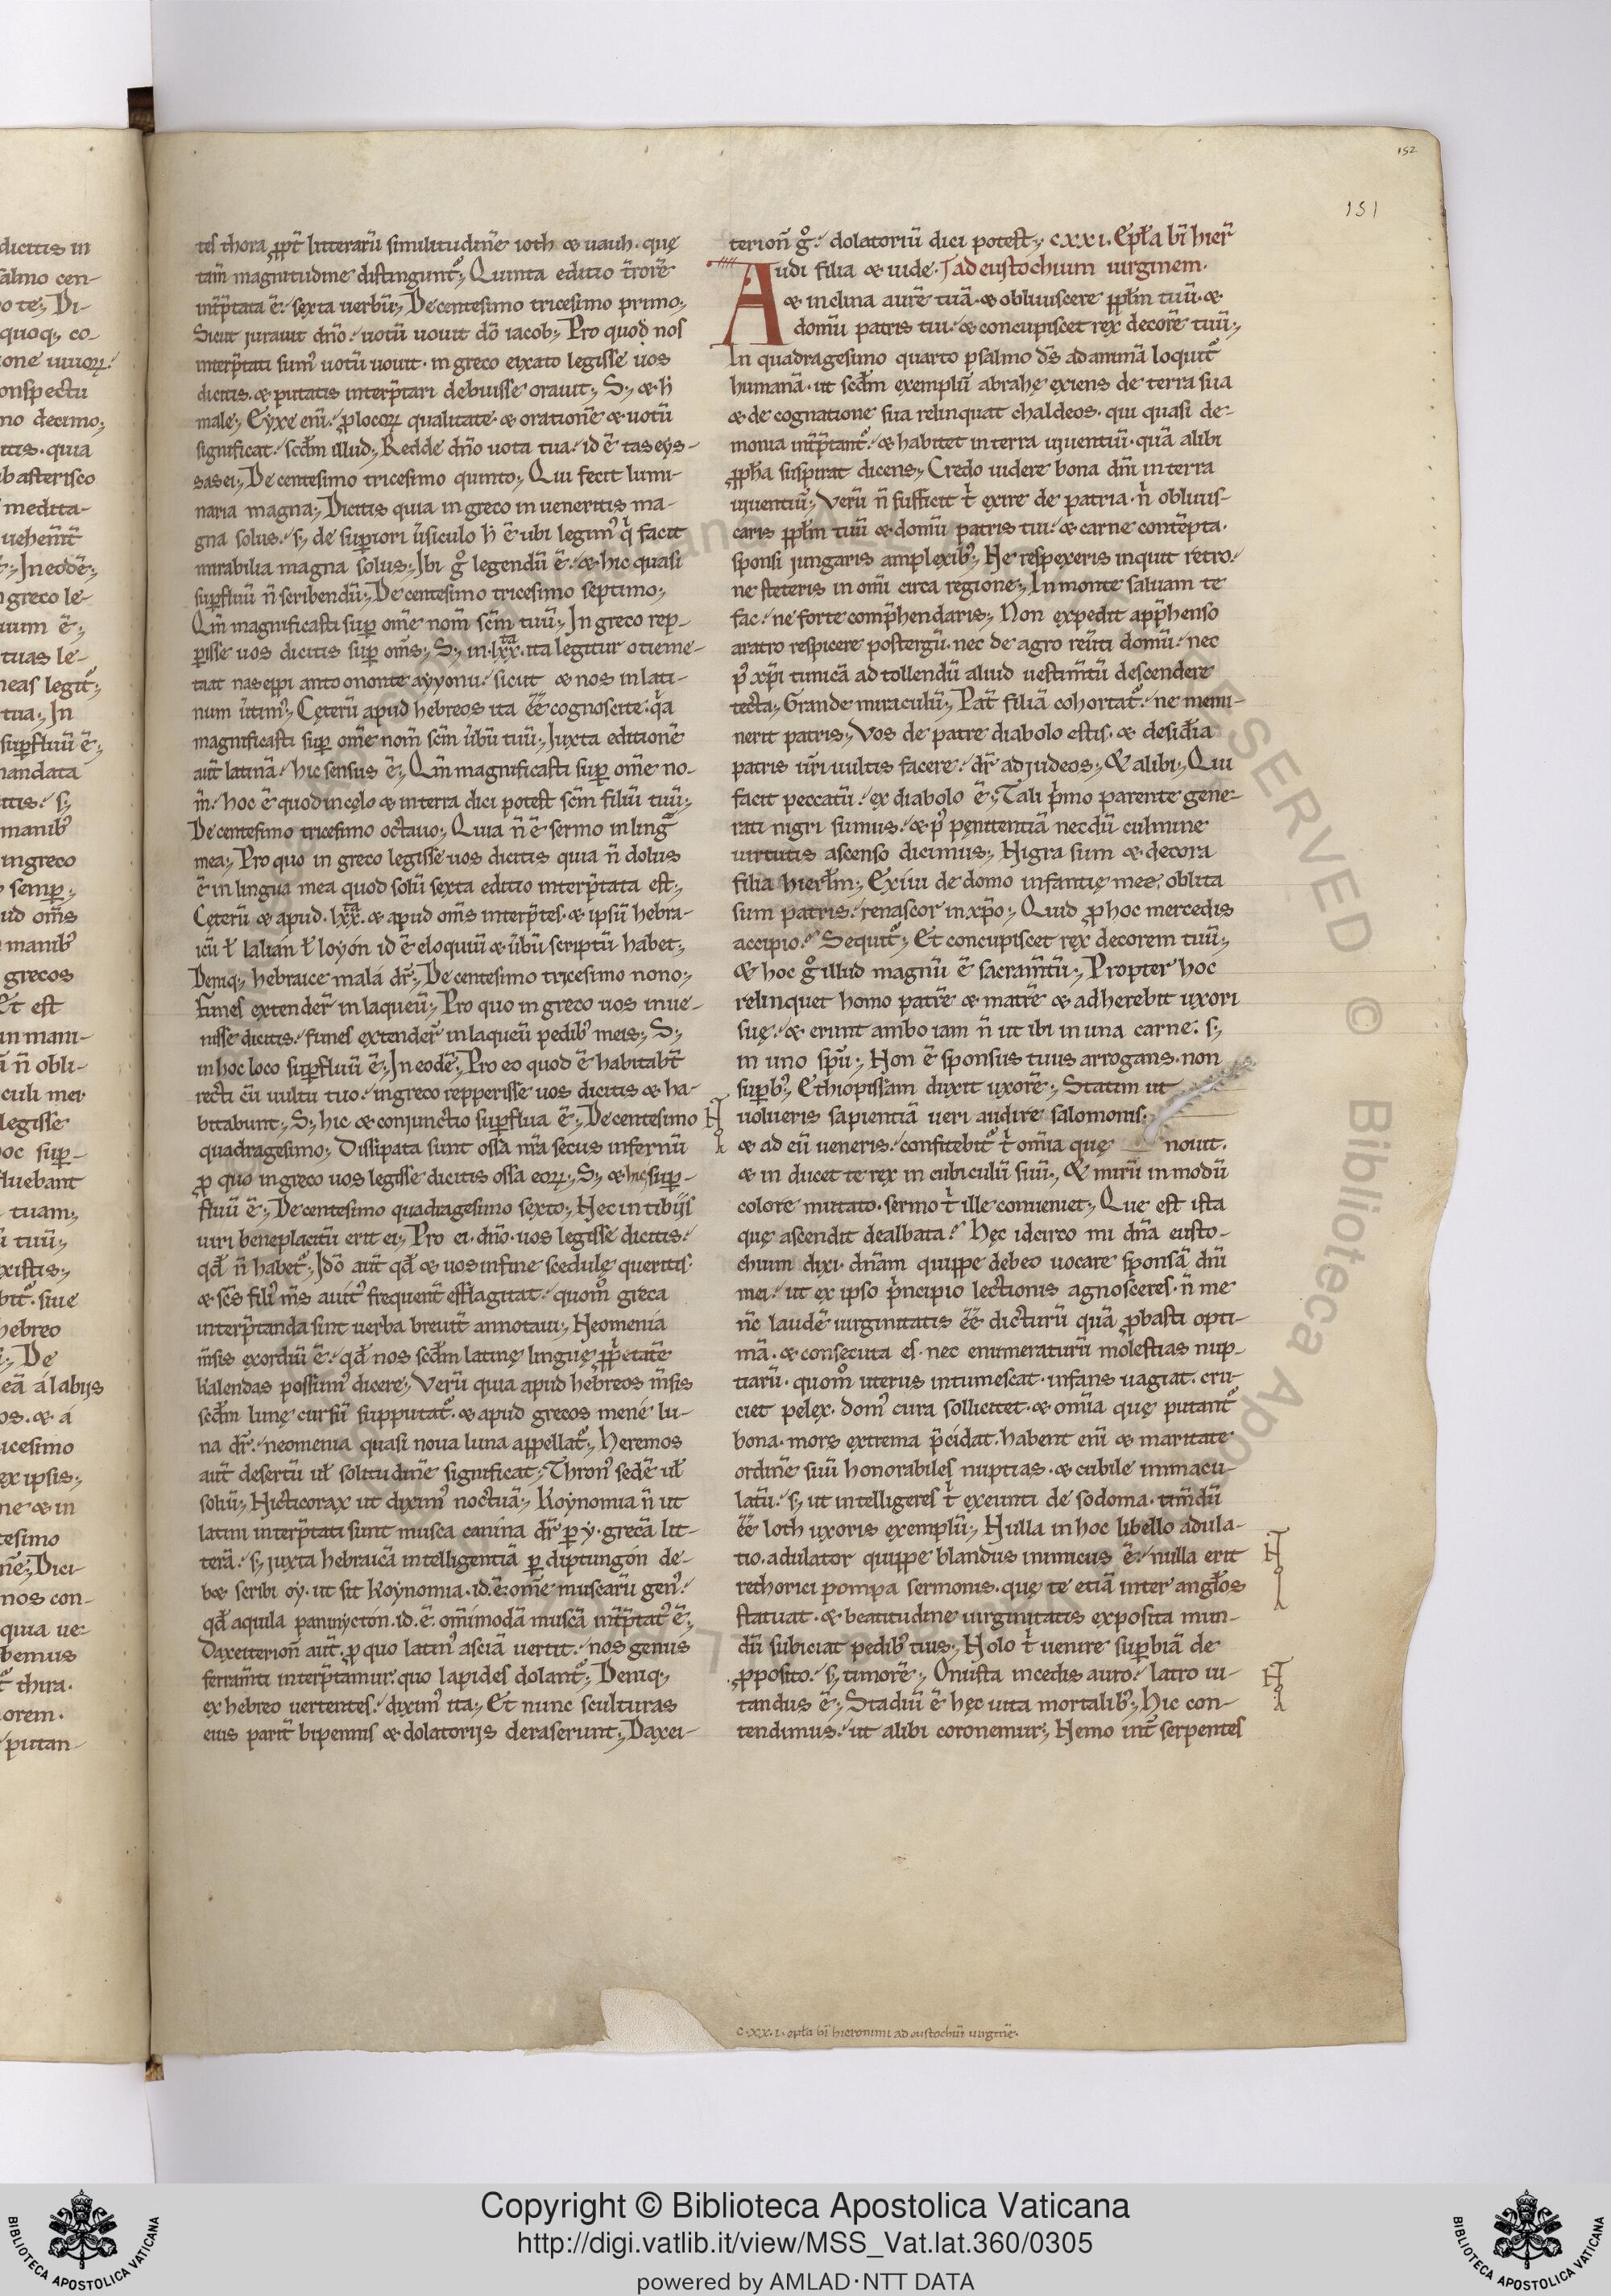 152
151
tes thora ꝓpt̄ litterarū similitudinē ioth & uauh. quę
tam̄ magnitudine distingunt᷑; Quinta editio t̄rorē
int̄p̄tata ē. sexta uerbū; De centesimo tricesimo primo;
Sicut jurauit dn̄o. uotū uouit dō iacob; Pro quod nos
interp̄tati sumꝰ uotū uouit. in greco eixato legisse uos
dicitis. & putatis interp̄tari debuisse orauit; S; & h̄
male; Eyxe eni᷑. ꝓ locoꝝ qualitate & orationē & uotū
significat. scd̄m illud; Redde dn̄o uota tua. id ē tas eys-
sas ei; De centesimo tricesimo quinto; Qui fecit lumi-
naria magna; Dicitis quia in greco inueneritis ma-
gna solus. s; de superiori ūsiculo h̄ ē ubi legimꝰ qͥ facit
mirabilia magna solus; Ibi gͦ legendū ē. & hic quasi
suꝑfluū n̄ scribendū; De centesimo tricesimo septimo;
Qm̄ magnificasti suꝑ om̄e nom̄ scm̄ tuū; In greco rep-
ꝑisse uos dicitis suꝑ om̄s; S; in .lxx. ita legitur oti eme-
num ūtimꝰ; Cęterū apud hebreos ita ēē cognoscite. qͣa
magnificasti suꝑ om̄e nom̄ scm̄ ūbū tuū; Juxta editionē
aut̄ latinā. hic sensus ē; Qm̄ magnificasti suꝑ om̄e no-
m̄. hoc ē quod in cęlo & in terra dici potest scm̄ filiū tuū;
De centesimo tricesimo octauo; Quia n̄ ē sermo in lingͣ
mea; Pro quo in greco legisse uos dicitis quia n̄ dolus
ē in lingua mea quod solū sexta editio interp̄tata est;
Cęterū & apud .lxx. & apud om̄s interp̄tes. & ipsū hebra-
icū ł lalián ł loyón id ē eloquiū & ūbū scriptū habet;
Deniq; hebraice malá dr̄; De centesimo tricesimo nono;
Funes extender̄ in laqueū; Pro quo in greco uos inue-
nisse dicitis. funes extender̄ in laqueū pedibꝰ meis; S;
in hoc loco suꝑfluū ē; In eodē; Pro eo quod ē habitabt̄
recti cū uultu tuo. in greco repperisse uos dicitis & ha-
bitabunt; S; hic & conjunctio suꝑflua ē; De centesimo
quadragesimo; Dissipata sunt ossa nr̄a secus infernū
ꝓ quo in greco uos legisse dicitis ossa eoꝝ; S; & hic suꝑ-
fluū ē; De centesimo quadragesimo sexto; Nec in tibijs
uiri beneplacitū erit ei; Pro ei. dn̄o. uos legisse dicitis.
qd̄ n̄ habet᷑; Idō aut̄ qd̄ & uos in fine scedulę queritis.
& scs̄ filiꝰ m̄s auitꝰ frequent̄ efflagitat. quomͦ greca
interp̄tanda sint uerba breuit̄ annotaui; Neomenia
m̄sis exordiū ē. qd̄ nos scd̄m latinę linguę ꝓpͥetatē
kalendas possumꝰ dicere; Verū quia apud hebreos m̄sis
scd̄m lunę cursū supputat᷑. & apud grecos mene lu-
na dr̄. neomenia quasi noua luna appellat᷑; Heremos
aut̄ desertū ul̄ solitudinē significat; Thronꝰ sedē ul̄
soliū; Nicticorax ut diximꝰ noctuā; Koynomia n̄ ut
latini interp̄tati sunt musca canina dr̄ ꝑ y. grecā lit-
terā. s; juxta hebraicā intelligentiā ꝑ diptungón de-
b& scribi oy. ut sit koynomia. id. ē. om̄e muscarū genꝰ.
qd̄ aquila pannyction. id. ē. om̄imodā muscā int̄p̄tatꝰ ē;
Daxeiterion̄ aut̄. ꝓ quo latinꝰ asciā uertit. nos genus
ferram̄ti interp̄tamur. quo lapides dolant᷑; Deniq;
ex hebreo uertentes. diximꝰ ita; Et nunc sculturas
eius parit̄ bipennis & dolatorijs deraserunt; Daxei-
terion̄ gͦ. dolatoriū dici potest; CXXI. Epl̄a bī hier̄
Audi filia & uide. ad eustochium uirginem.
& inclina aurē tuā. & obliuiscere ppl̄m tuū. &
domū patris tui. & concupiscet rex decorē tuū;
In quadragesimo quarto psalmo ds̄ ad animā loquit᷑
humanā. ut scd̄m exemplū abrahę exiens de terra sua
& de cognatione sua relinquat chaldeos. qui quasi de-
monia int̄p̄tant᷑. & habitet in terra uiuentiū. quā alibi
ꝓpha suspirat dicens; Credo uidere bona dn̄i in terra
uiuentiū; Verū n̄ sufficit tͥ exire de patria. nͥ obliuis-
caris ppl̄m tuū & domū patris tui. & carne contēpta.
sponsi jungaris amplexibꝰ; Ne respexeris inquit retro.
ne steteris in om̄i circa regione; In monte saluam te
fac. ne forte comp̄hendaris; Non expedit app̄henso
aratro respicere post ergū. nec de agro reūti domū. nec
pꝰ xp̄i tunicā ad tollendū aliud uestim̄tū descendere
tecta; Grande miraculū; Pat̄ filiā cohortat᷑. ne memi-
nerit patris; Vos de patre diabolo estis. & desid̄ia
patris ur̄i uultis facere. dr̄ ad judeos; & alibi; Qui
facit peccatū. ex diabolo ē; Tali pͥmo parente gene-
rati nigri sumus. & pꝰ penitentiā necdū culmine
uirtutis ascenso dicimus; Nigra sum & decora
filia hierl̄m; Exiui de domo infantię mee. oblita
sum patris. renascor in xp̄o; Quid ꝓ hoc mercedis
accipio. Sequit᷑; Et concupiscet rex decorem tuū;
& hoc gͦ illud magnū ē sacram̄tū; Propter hoc
relinquet homo patrē & matrē & adherebit uxori
suę. & erunt ambo iam n̄ ut ibi in una carne. s;
in uno spū; Non ē sponsus tuus arrogans. non
suꝑbꝰ; Ethiopissam duxit uxorē; Statim ut
uolueris sapientiā ueri audire salomonis.
& ad eū ueneris. confitebit᷑ tͥ om̄ia quę nouit.
& inducet te rex in cubiculū suū; & mirū in modū
colore mutato. sermo tͥ ille conueniet; Que est ista
quę ascendit dealbata? Hęc idcirco mi dn̄a eusto-
chium dixi. dn̄am quippe debeo uocare sponsā dn̄i
mei. ut ex ipso pͥncipio lectionis agnosceres. n̄ me
nc̄ laudē uirginitatis ēē dicturū quā ꝓbasti opti-
mā. & consecuta es. nec enumeraturū molestias nup-
tiarū. quomͦ uterus intumescat. infans uagiat. cru-
ciet pelex. domꝰ cura sollicitet. & om̄ia quę putant᷑
bona. mors extrema p̄cidat. habent eni᷑ & maritate
ordinē suū honorabiles nuptias. & cubile immacu-
latū. s; ut intelligeres tͥ exeunti de sodoma. tim̄dū
ēē loth uxoris exemplū; Nulla in hoc libello adula-
tio. adulator quippe blandus inimicus ē. nulla erit
rethorici pompa sermonis. quę te etiā inter angl̄os
statuat. & beatitudine uirginitatis exposita mun-
dū subiciat pedibꝰ tuis; Nolo tͥ uenire suꝑbiā de
ꝓposito. s; timorē; Onusta incedis auro. latro ui-
tandus ē; Stadiū ē hęc uita mortalibꝰ; Hic con-
tendimus. ut alibi coronemur; Nemo int̄ serpentes
c.xx.i. epl̄a bī hieronimi ad eustochiū uirginē.
Copyright © Biblioteca Apostolica Vaticana
http://digi.vatlib.it/view/MSS_Vat.lat.360/0305
powered by AMLAD·NTT DATA
BIBLIOTECA APOSTOLICA VATICANA
BIBLIOTECA APOSTOLICA VATICANA